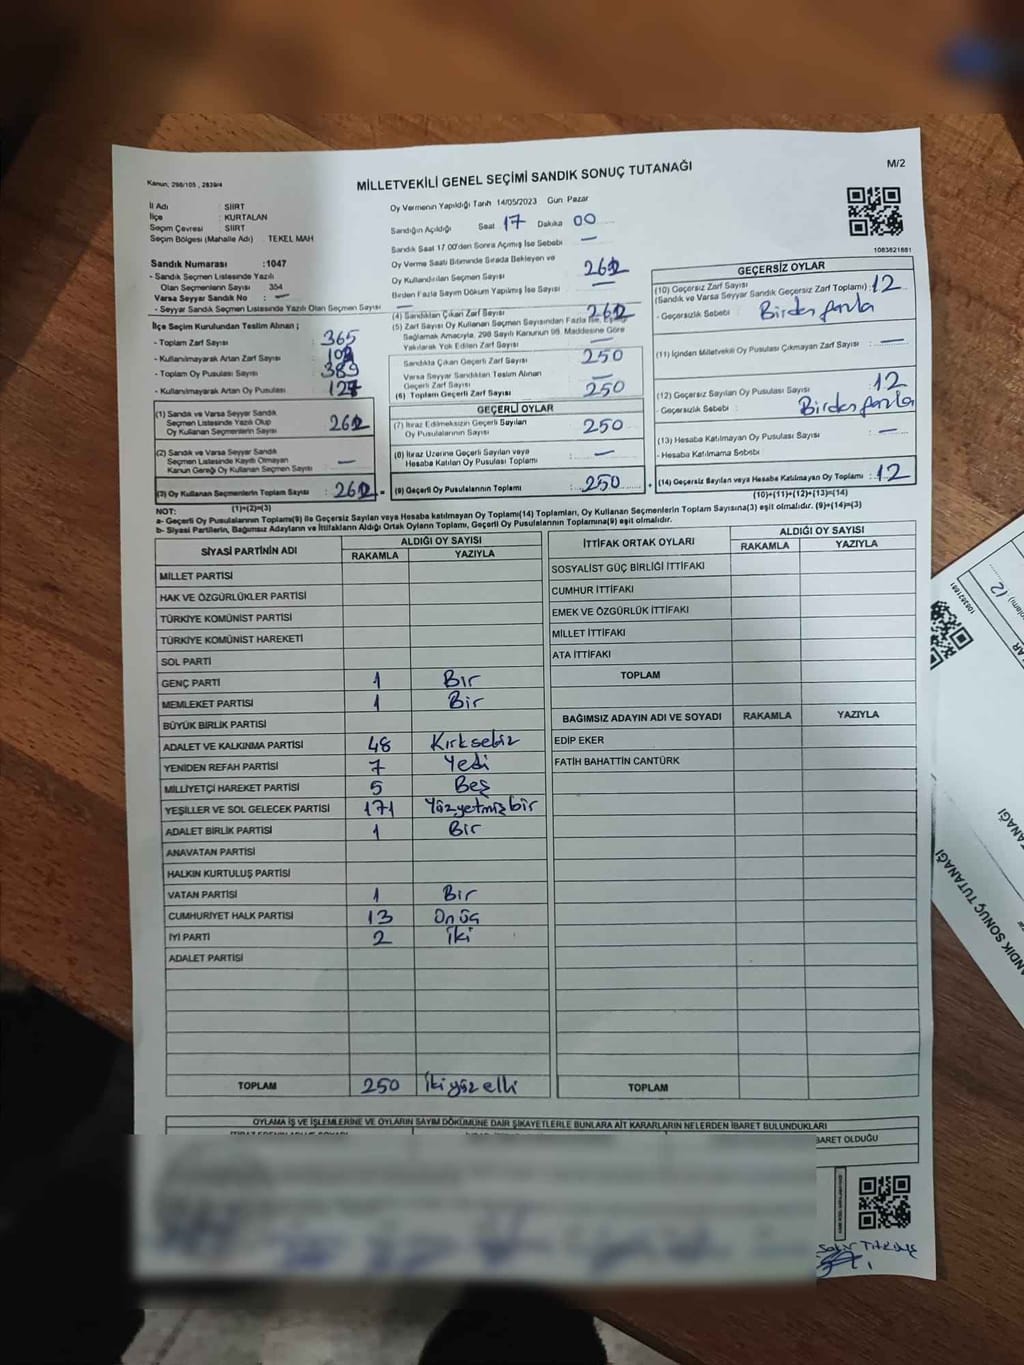 Kanun; 298/105 , 2839/4
MİLLETVEKİLİ GENEL SEÇİMİ SANDIK SONUÇ TUTANAĞI
M/2
İl Adı : SİİRT
İlçe : KURTALAN
Seçim Çevresi : SİİRT
Seçim Bölgesi (Mahalle Adı) : TEKEL MAH
Sandık Numarası : 1047
- Sandık Seçmen Listesinde Yazılı
Olan Seçmenlerin Sayısı 354
Varsa Seyyar Sandık No : —
- Seyyar Sandık Seçmen Listesinde Yazılı Olan Seçmen Sayısı : —
İlçe Seçim Kurulundan Teslim Alınan ;
- Toplam Zarf Sayısı : 365
- Kullanılmayarak Artan Zarf Sayısı :
- Toplam Oy Pusulası Sayısı : 389
- Kullanılmayarak Artan Oy Pusulası : 127
(1) Sandık ve Varsa Seyyar Sandık
Seçmen Listesinde Yazılı Olup
Oy Kullanan Seçmenlerin Sayısı : 262
(2) Sandık ve Varsa Seyyar Sandık
Seçmen Listesinde Kayıtlı Olmayan
Kanun Gereği Oy Kullanan Seçmen Sayısı : —
(3) Oy Kullanan Seçmenlerin Toplam Sayısı : 262 =
(1)+(2)=(3)
Oy Vermenin Yapıldığı Tarih 14/05/2023 Gün Pazar
Sandığın Açıldığı Saat 17 Dakika 00
Sandık Saat 17.00'den Sonra Açılmış İse Sebebi —
Oy Verme Saati Bitiminde Sırada Bekleyen ve
Oy Kullandırılan Seçmen Sayısı 262
Birden Fazla Sayım Döküm Yapılmış İse Sayısı —
(4) Sandıktan Çıkan Zarf Sayısı : 262
(5) Zarf Sayısı Oy Kullanan Seçmen Sayısından Fazla İse, Eşitliği
Sağlamak Amacıyla, 298 Sayılı Kanunun 98. Maddesine Göre
Yakılarak Yok Edilen Zarf Sayısı : —
Sandıkta Çıkan Geçerli Zarf Sayısı : 250
Varsa Seyyar Sandıktan Teslim Alınan
Geçerli Zarf Sayısı : —
(6) Toplam Geçerli Zarf Sayısı : 250
GEÇERLİ OYLAR
(7) İtiraz Edilmeksizin Geçerli Sayılan
Oy Pusulalarının Sayısı : 250
(8) İtiraz Üzerine Geçerli Sayılan veya
Hesaba Katılan Oy Pusulası Toplamı : —
(9) Geçerli Oy Pusulalarının Toplamı : 250 +
1083821681
GEÇERSİZ OYLAR
(10) Geçersiz Zarf Sayısı
(Sandık ve Varsa Seyyar Sandık Geçersiz Zarf Toplamı) : 12
- Geçersizlik Sebebi : Birden fazla
(11) İçinden Milletvekili Oy Pusulası Çıkmayan Zarf Sayısı : —
(12) Geçersiz Sayılan Oy Pusulası Sayısı : 12
- Geçersizlik Sebebi : Birden fazla
(13) Hesaba Katılmayan Oy Pusulası Sayısı : —
- Hesaba Katılmama Sebebi :
(14) Geçersiz Sayılan veya Hesaba Katılmayan Oy Toplamı : 12
(10)+(11)+(12)+(13)=(14)
NOT:
a- Geçerli Oy Pusulalarının Toplamı(9) ile Geçersiz Sayılan veya Hesaba Katılmayan Oy Toplamı(14) Toplamları, Oy Kullanan Seçmenlerin Toplam Sayısına(3) eşit olmalıdır. (9)+(14)=(3)
b- Siyasi Partilerin, Bağımsız Adayların ve İttifakların Aldığı Ortak Oyların Toplamı, Geçerli Oy Pusulalarının Toplamına(9) eşit olmalıdır.
SİYASİ PARTİNİN ADI ALDIĞI OY SAYISI
RAKAMLA YAZIYLA
MİLLET PARTİSİ
HAK VE ÖZGÜRLÜKLER PARTİSİ
TÜRKİYE KOMÜNİST PARTİSİ
TÜRKİYE KOMÜNİST HAREKETİ
SOL PARTİ
GENÇ PARTİ 1 Bir
MEMLEKET PARTİSİ 1 Bir
BÜYÜK BİRLİK PARTİSİ
ADALET VE KALKINMA PARTİSİ 48 Kırksekiz
YENİDEN REFAH PARTİSİ 7 Yedi
MİLLİYETÇİ HAREKET PARTİSİ 5 Beş
YEŞİLLER VE SOL GELECEK PARTİSİ 171 Yüzyetmişbir
ADALET BİRLİK PARTİSİ 1 Bir
ANAVATAN PARTİSİ
HALKIN KURTULUŞ PARTİSİ
VATAN PARTİSİ 1 Bir
CUMHURİYET HALK PARTİSİ 13 Onüç
İYİ PARTİ 2 İki
ADALET PARTİSİ
TOPLAM 250 İkiyüz elli
İTTİFAK ORTAK OYLARI ALDIĞI OY SAYISI
RAKAMLA YAZIYLA
SOSYALİST GÜÇ BİRLİĞİ İTTİFAKI
CUMHUR İTTİFAKI
EMEK VE ÖZGÜRLÜK İTTİFAKI
MİLLET İTTİFAKI
ATA İTTİFAKI
TOPLAM
BAĞIMSIZ ADAYIN ADI VE SOYADI RAKAMLA YAZIYLA
EDİP EKER
FATİH BAHATTİN CANTÜRK
TOPLAM
OYLAMA İŞ VE İŞLEMLERİNE VE OYLARIN SAYIM DÖKÜMÜNE DAİR ŞİKAYETLERLE BUNLARA AİT KARARLARIN NELERDEN İBARET BULUNDUKLARI
BARET OLDUĞU
1083821681
12
ANDIK SONUÇ TUTANAĞI